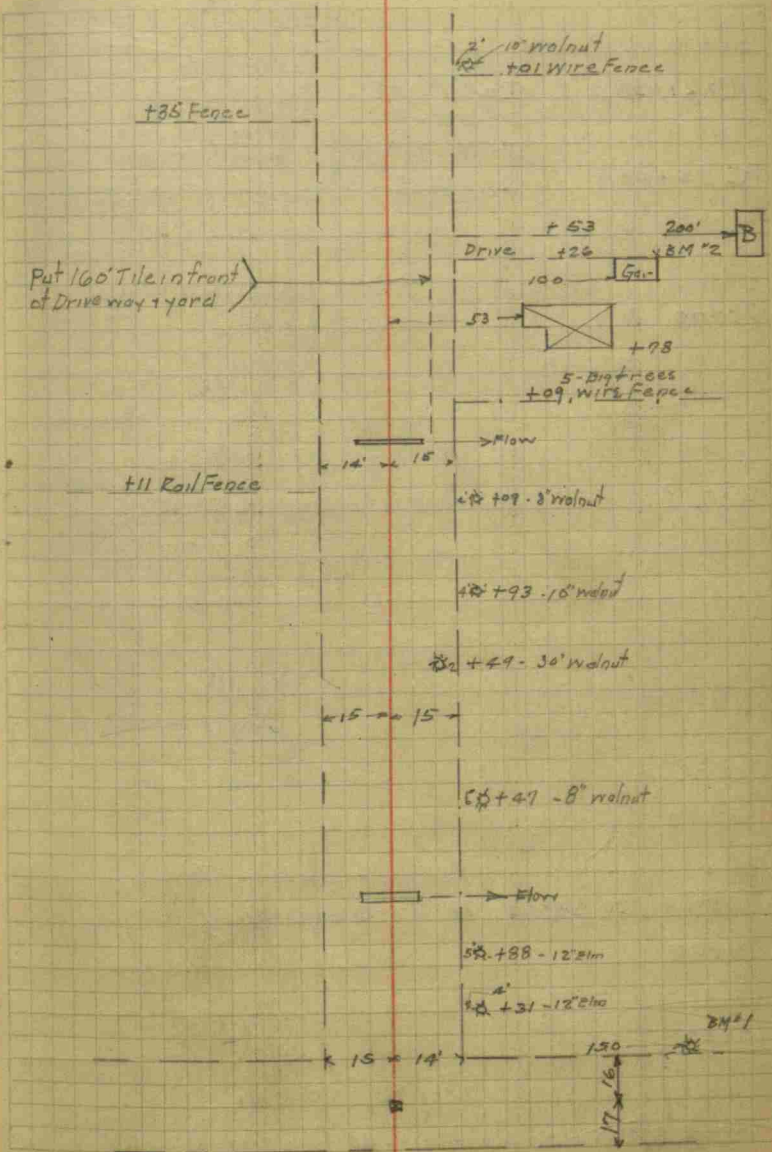 2' 10" walnut
+01 Wire Fence
+35 Fence
+53 200' B
Drive +26 BM #2
100 Gar.
Put 160' Tile in front
of Driveway & yard
53
+78
5-Big trees
+09, Wire Fence
Flow
14' 15
+11 Rail Fence
+09 - 8" walnut
4' +93 - 10" walnut
2 +49 - 30" walnut
15 15
+47 - 8" walnut
Flow
5' +88 - 12" Elm
4' +31 - 12" Elm
BM #1
15 14' 150
16
17